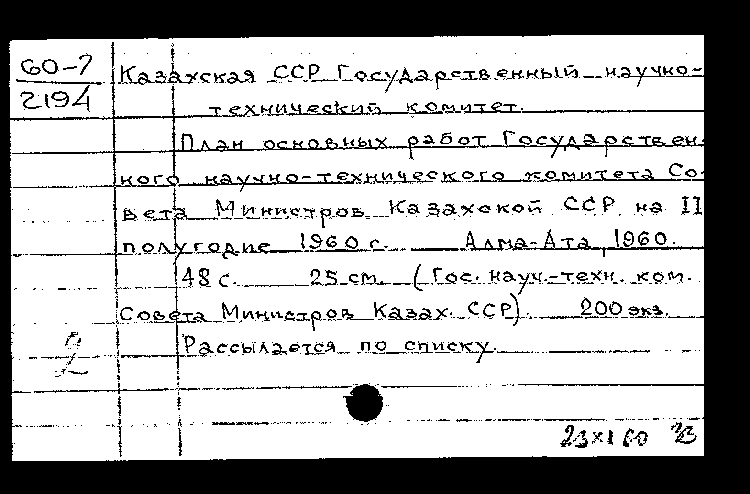 60-7
2194
Казахская ССР Государственный научно-
технический комитет.
План основных работ Государствен-
ного научно-технического комитета Со-
вета Министров Казахской ССР на II
полугодие 1960 г. Алма-Ата, 1960.
48 с. 25 см. (Гос. науч.-техн. ком.
Совета Министров Казах. ССР) 200 экз.
Рассылается по списку.
2
23 XI 60